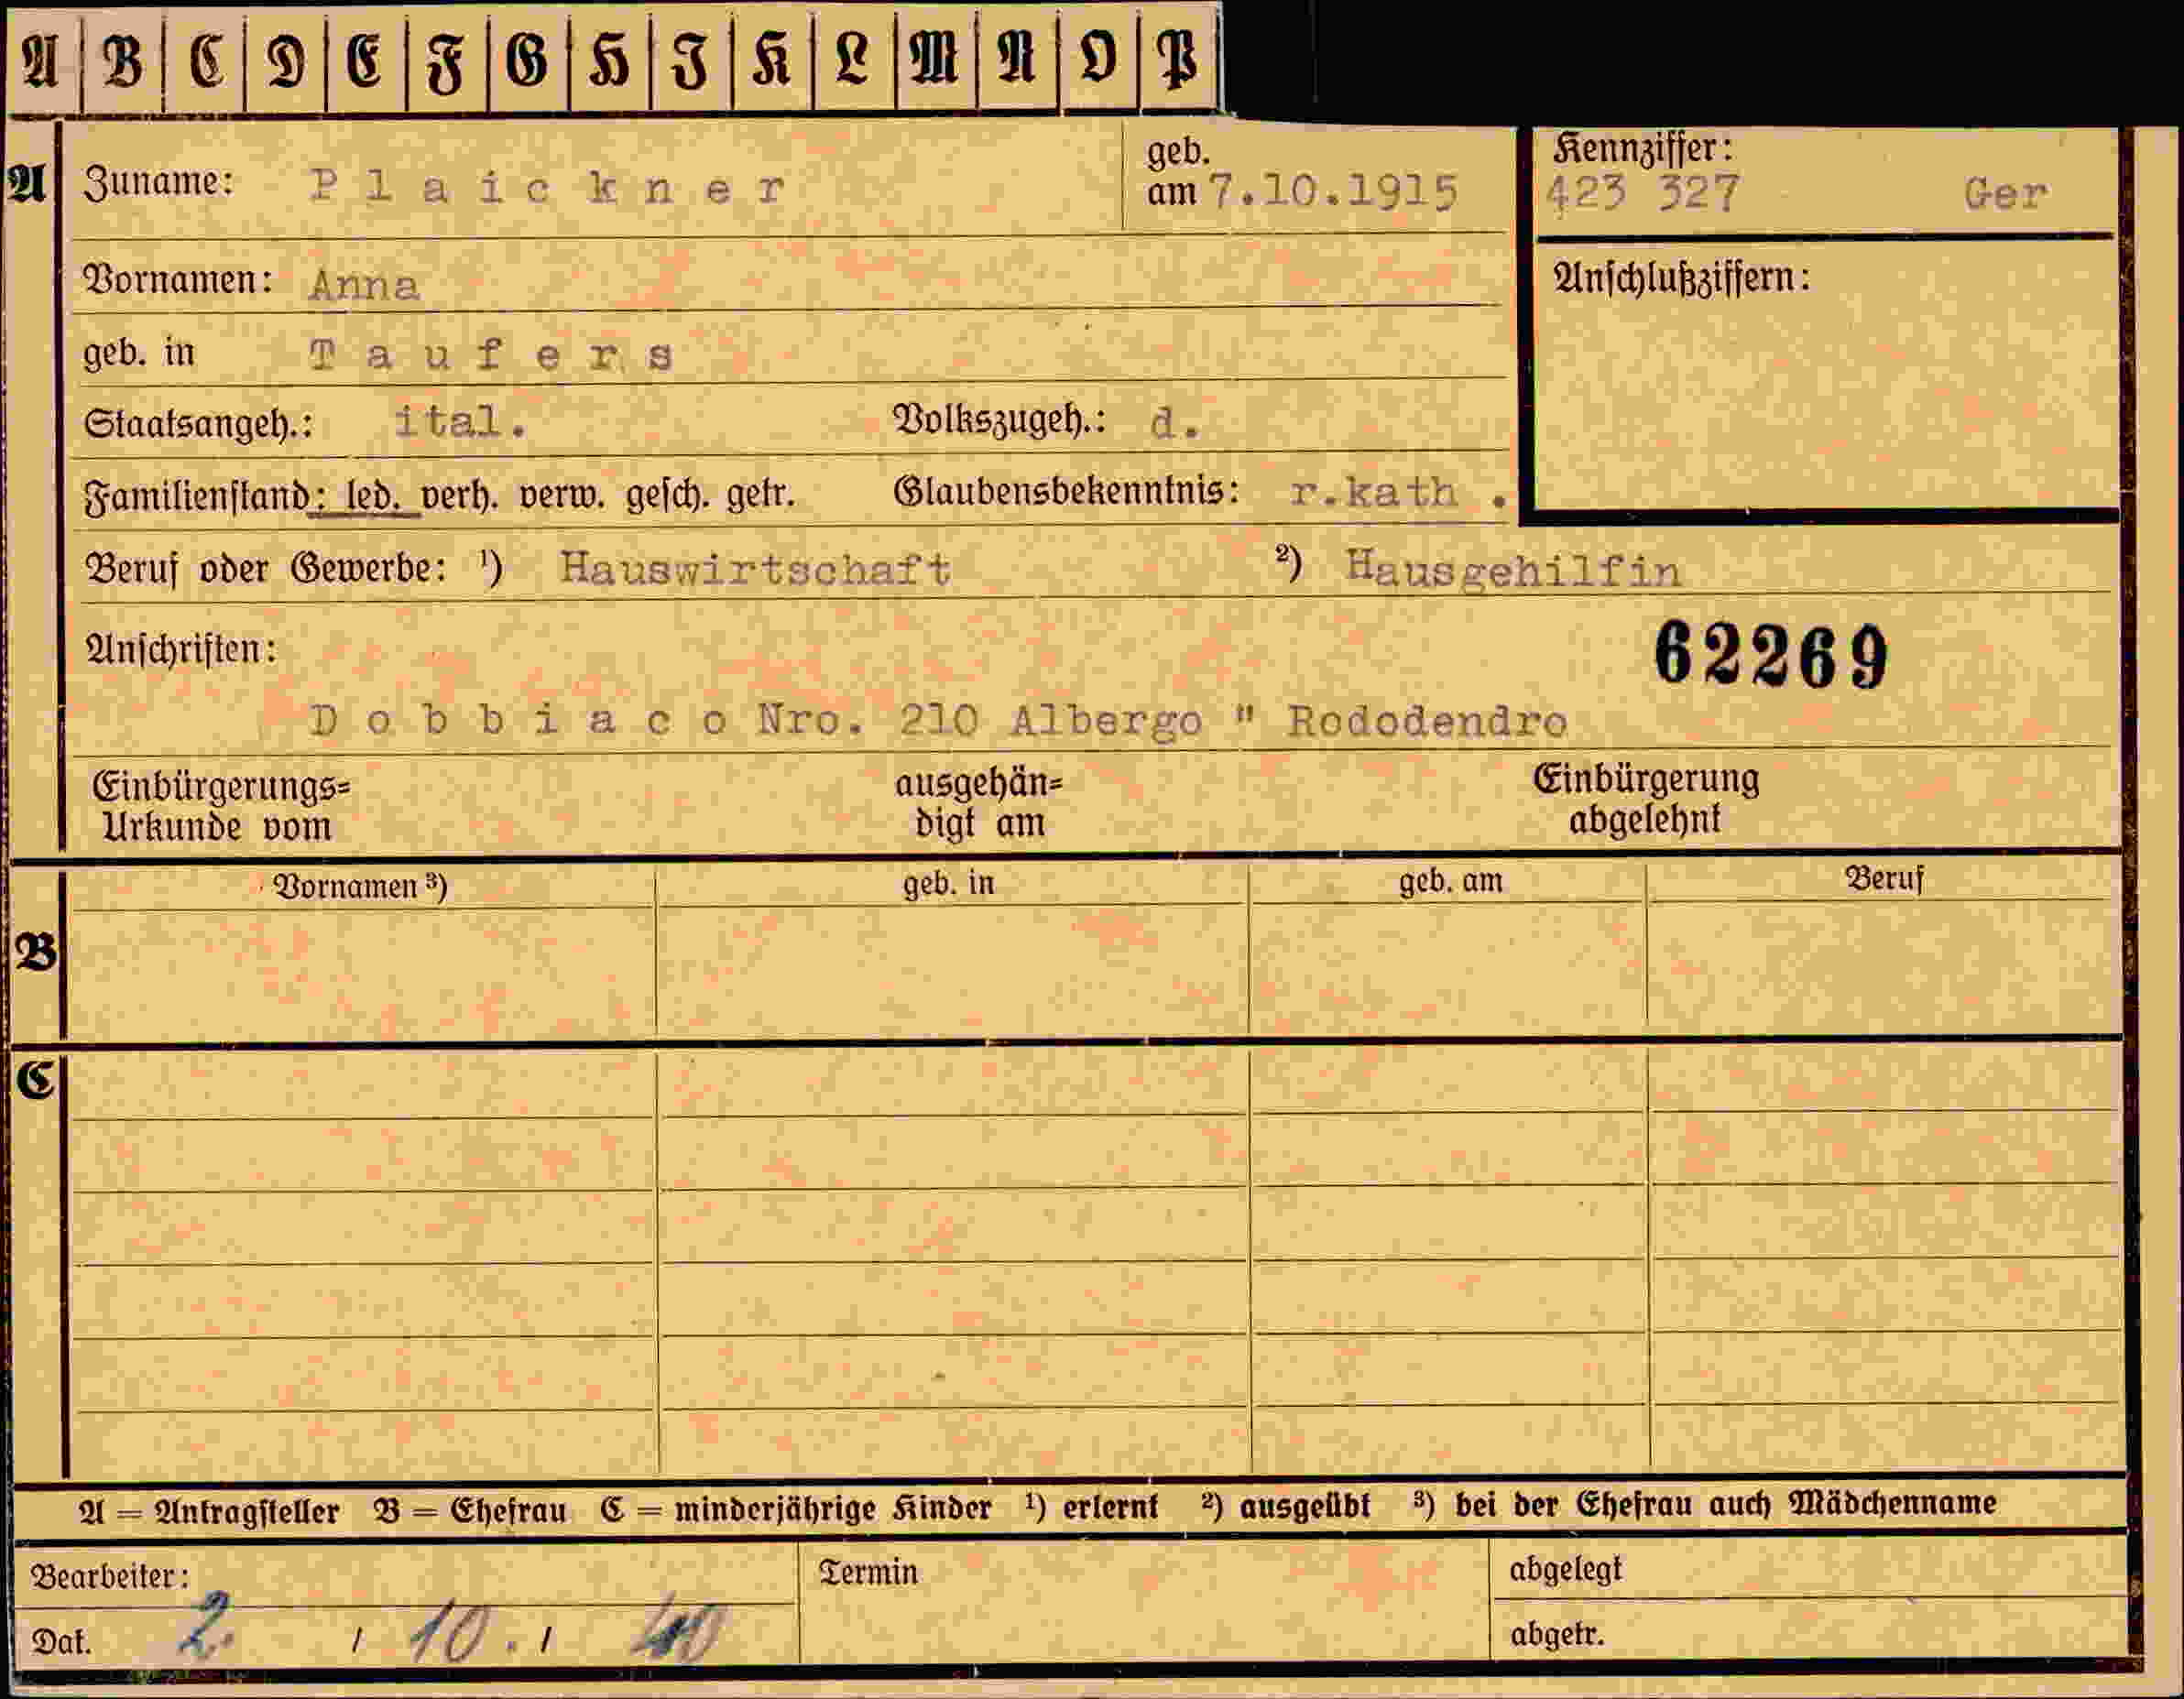 A B C D E F G H I K L M N O P
A Zuname: Plaickner geb. am 7.10.1915
Kennziffer: 423 327 Ger
Vornamen: Anna
Anschlußziffern:
geb. in Taufers
Staatsangeh.: ital. Volkszugeh.: d.
Familienstand: led. verh. verw. gesch. getr. Glaubensbekenntnis: r.kath .
Beruf oder Gewerbe: ¹) Hauswirtschaft ²) Hausgehilfin
Anschriften: 62269
Dobbiaco Nro. 210 Albergo " Rododendro
Einbürgerungs= ausgehän= Einbürgerung
Urkunde vom digt am abgelehnt
Vornamen ³) geb. in geb. am Beruf
B
C
A = Antragsteller B = Ehefrau C = minderjährige Kinder ¹) erlernt ²) ausgeübt ³) bei der Ehefrau auch Mädchenname
Bearbeiter: Termin abgelegt
Dat. 2. / 10. / 40 abgetr.